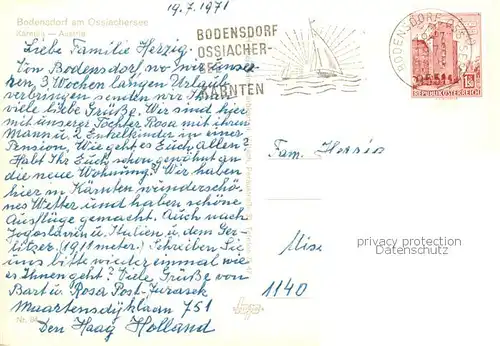 19.7.1971
Bodensdorf am Ossiachersee
Kärnten — Austria
BODENSDORF
OSSIACHER-
SEE
KÄRNTEN
BODENSDORF
REPUBLIK ÖSTERREICH
Liebe Familie Herzig.
Von Bodensdorf wo wir unseren
3 Wochen langen Urlaub
verbringen senden wir Ihnen
viele liebe Grüße. Wir sind hier
mit unserer Tochter Rosa mit ihren
Mann u. 2 Enkelkinder in einer
Pension. Wie geht es Euch Allen?
Habt Ihr Euch schon gewöhnt an
die neue Wohnung? Wir haben
hier in Kärnten wunderschö-
nes Wetter und haben schöne
Ausflüge gemacht. Auch nach
Jugoslavin u. Italien u. dem Ger-
litzer. (1911 meter) Schreiben Sie
uns bitte wieder einmal wie
es Ihnen geht? Viele Grüße von
Bart u. Rosa Post-Jurasek
Maartensdijklaan 751
Den Haag Holland
Fam.
1140
privacy protection
Datenschutz